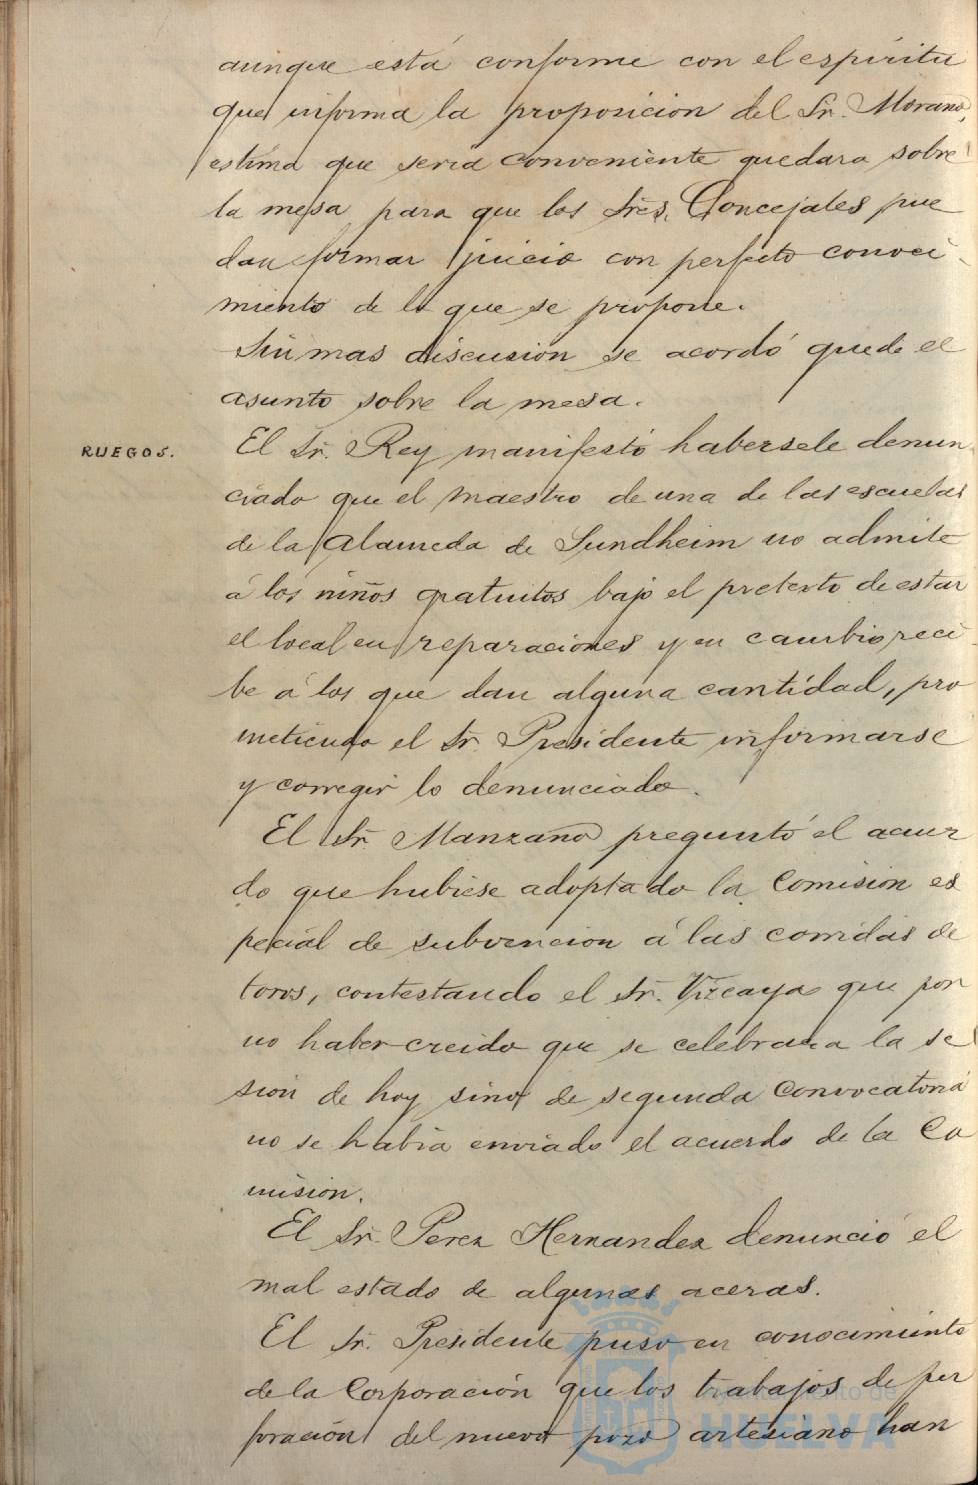 aunque está conforme con el espíritu
que informa la proposicion del Sr. Morano,
estima que seria conveniente quedara sobre
la mesa para que los Sres. Concejales pue
dan formar juicio con perfecto conoci-
miento de lo que se propone.
Sin mas discusion se acordó quede el
asunto sobre la mesa.
RUEGOS.
El Sr. Rey manifestó habersele denun
ciado que el maestro de una de las escuelas
de la Alameda de Sundheim no admite
á los niños gratuitos bajo el pretexto de estar
el local en reparaciones y en cambio reci-
be á los que dan alguna cantidad, pro
metiendo el Sr. Presidente informarse
y corregir lo denunciado.
El Sr. Manzano preguntó el acuer
do que hubiese adoptado la Comision es
pecial de subvencion á las corridas de
toros, contestando el Sr. Vizcaya que por
no haber creido que se celebrara la se
sion de hoy sino de segunda convocatoria
no se habia enviado el acuerdo de la Co
mision.
El Sr. Perez Hernandez denunció el
mal estado de algunas aceras.
El Sr. Presidente puso en conocimiento
de la Corporación que los trabajos de per
foración del nuevo pozo artesiano han
Ayuntamiento de
HUELVA